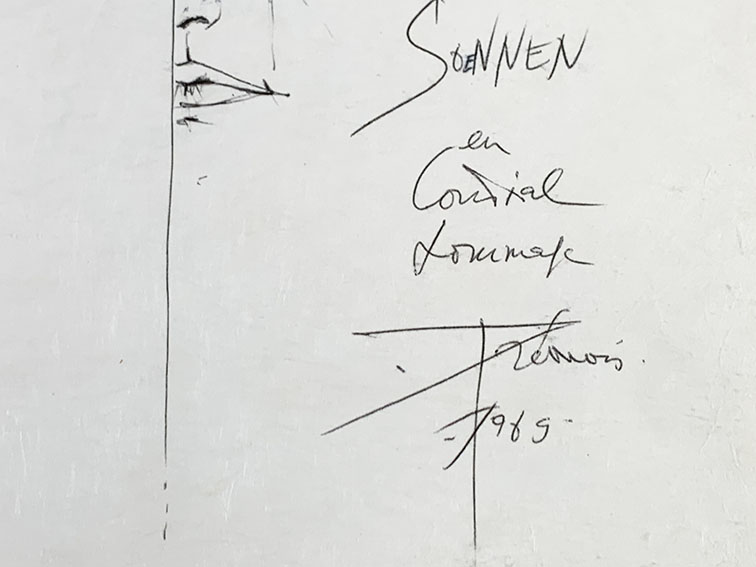 SOENNEN
en
Cordial
hommage
Trémois.
-1969-